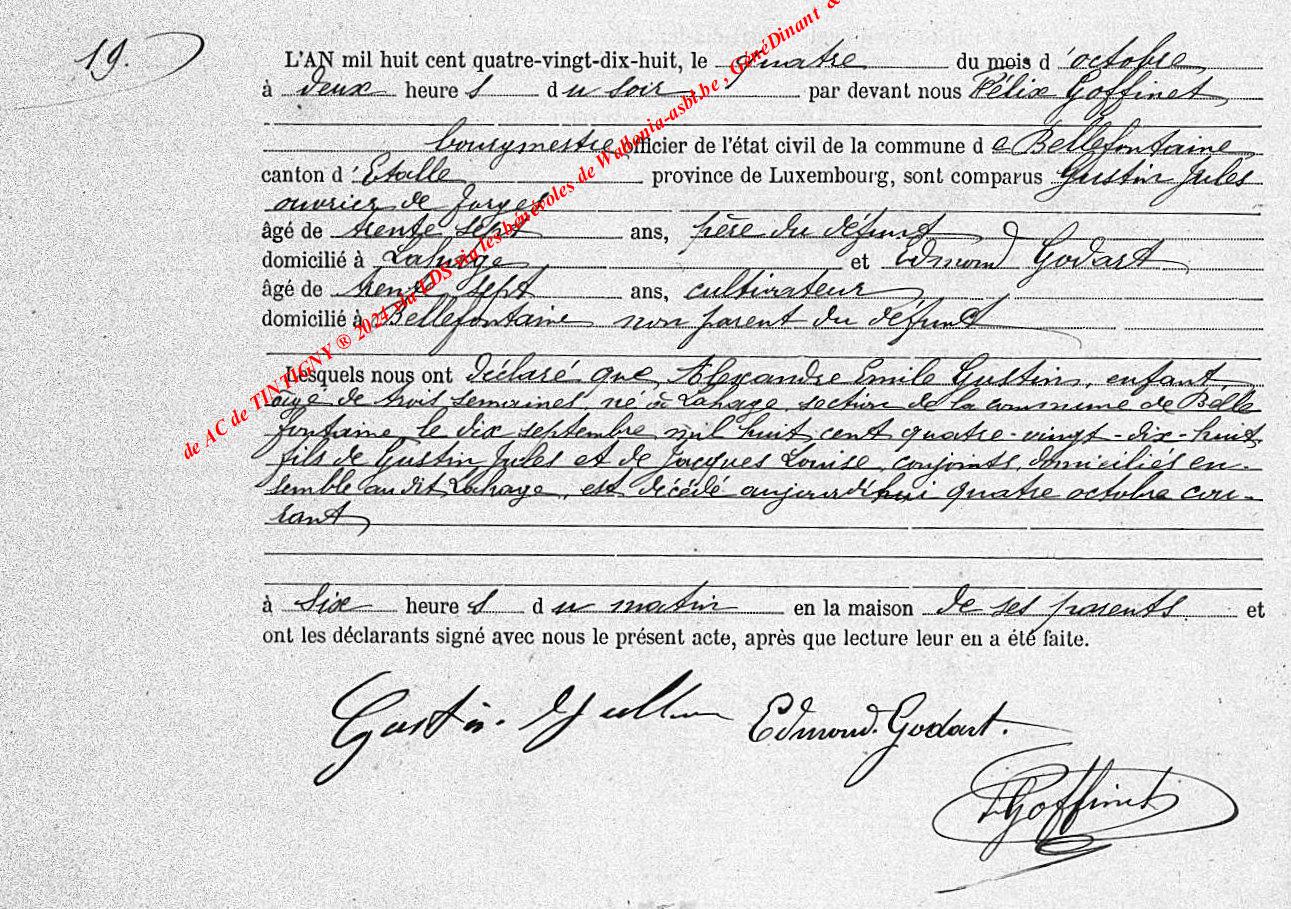 19.
L'AN mil huit cent quatre-vingt-dix-huit, le quatre du mois d'octobre
à deux heures du soir par devant nous Félix Goffinet
bourgmestre officier de l'état civil de la commune de Bellefontaine
canton d'Etalle province de Luxembourg, sont comparus Gustin Jules
ouvrier de forges
âgé de trente sept ans, père du défunt
domicilié à Lahage et Edmond Godart
âgé de trente sept ans, cultivateur
domicilié à Bellefontaine non parent du défunt
Lesquels nous ont déclaré que Alexandre Emile Gustin, enfant
âgé de trois semaines, né à Lahage, section de la commune de Belle
fontaine le dix septembre mil huit cent quatre-vingt-dix-huit
fils de Gustin Jules et de Jacques Louise, conjoints, domiciliés en-
semble au dit Lahage, est décédé aujourd'hui quatre octobre cou-
rant
à six heures du matin en la maison de ses parents et
ont les déclarants signé avec nous le présent acte, après que lecture leur en a été faite.
Gustin Edmond. Godart.
Goffinet
de AC de TINTIGNY ® 2024 via LDS via les bénévoles de Wallonia-asbl.be , GénéDinant &